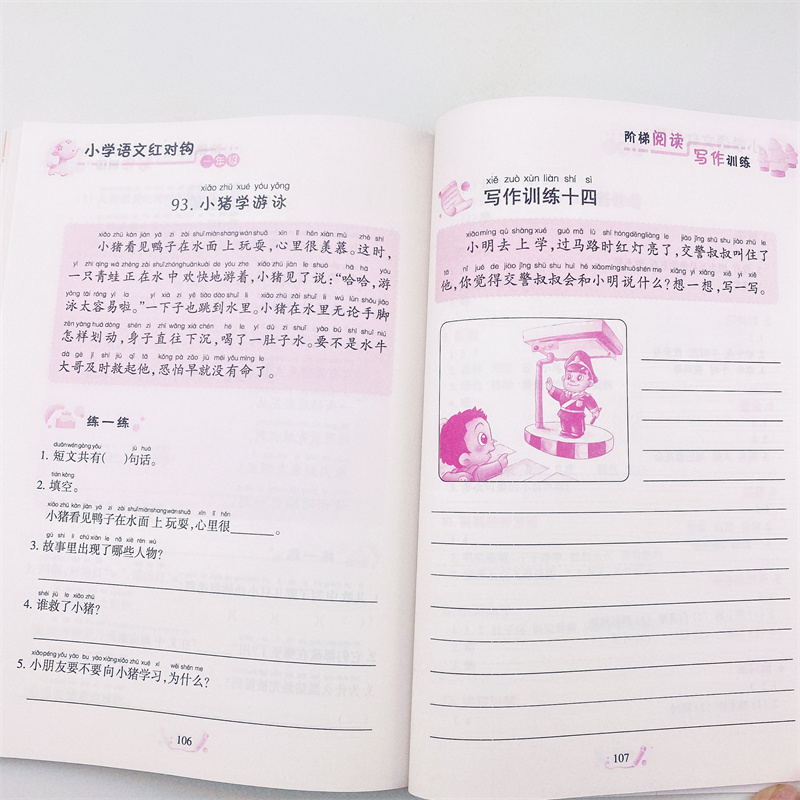 小学语文红对钩
一年级
xiǎo zhū xué yóu yǒng
93. 小猪学游泳
xiǎo zhū kàn jiàn yā zi zài shuǐ miàn shang wán shuǎ xīn lǐ hěn xiàn mù zhè shí
小猪看见鸭子在水面上玩耍,心里很羡慕。这时,
yì zhī qīng wā zhèng zài shuǐ zhōng huān kuài de yóu zhe xiǎo zhū jiàn le shuō hā hā yóu
一只青蛙正在水中欢快地游着,小猪见了说:“哈哈,游
yǒng tài róng yì la yí xià zi yě tiào dào shuǐ lǐ xiǎo zhū zài shuǐ lǐ wú lùn shǒu jiǎo
泳太容易啦。”一下子也跳到水里。小猪在水里无论手脚
zěn yàng huá dòng shēn zi zhí wǎng xià chén hē le yì dù zi shuǐ yào bú shì shuǐ niú
怎样划动,身子直往下沉,喝了一肚子水。要不是水牛
dà gē jí shí jiù qǐ tā kǒng pà zǎo jiù méi yǒu mìng le
大哥及时救起他,恐怕早就没有命了。
练一练
duǎn wén gòng yǒu jù huà
1. 短文共有( )句话。
tián kòng
2. 填空。
xiǎo zhū kàn jiàn yā zi zài shuǐ miàn shang wán shuǎ xīn lǐ hěn
小猪看见鸭子在水面上玩耍,心里很______。
gù shi lǐ chū xiàn le nǎ xiē rén wù
3. 故事里出现了哪些人物?
shéi jiù le xiǎo zhū
4. 谁救了小猪?
xiǎo péng yǒu yào bu yào xiàng xiǎo zhū xué xí wèi shén me
5. 小朋友要不要向小猪学习,为什么?
106
阶梯阅读
写作训练
xiě zuò xùn liàn shí sì
写作训练十四
xiǎo míng qù shàng xué guò mǎ lù shí hóng dēng liàng le jiāo jǐng shū shu jiào zhù le
小明去上学,过马路时红灯亮了,交警叔叔叫住了
tā nǐ jué de jiāo jǐng shū shu huì hé xiǎo míng shuō shén me xiǎng yi xiǎng xiě yi xiě
他,你觉得交警叔叔会和小明说什么?想一想,写一写。
107